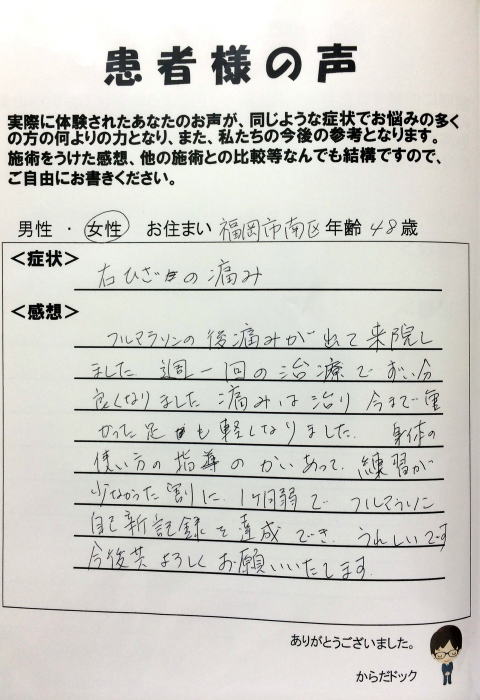 患者様の声
実際に体験されたあなたのお声が、同じような症状でお悩みの多く
の方の何よりの力となり、また、私たちの今後の参考となります。
施術をうけた感想、他の施術との比較等なんでも結構ですので、
ご自由にお書きください。
男性 ・ 女性 お住まい 福岡市南区 年齢 48歳
<症状>
右ひざの痛み
<感想>
フルマラソンの後痛みが出て来院し
ました 週一回の治療でずい分
良くなりました 痛みは治り 今まで重
かった足も軽くなりました. 身体の
使い方の指導のかいあって、練習が
少なかった割に、1ヶ月弱で フルマラソン
自己新記録を達成でき、うれしいです
今後共よろしくお願いいたします.
ありがとうございました。
からだドック